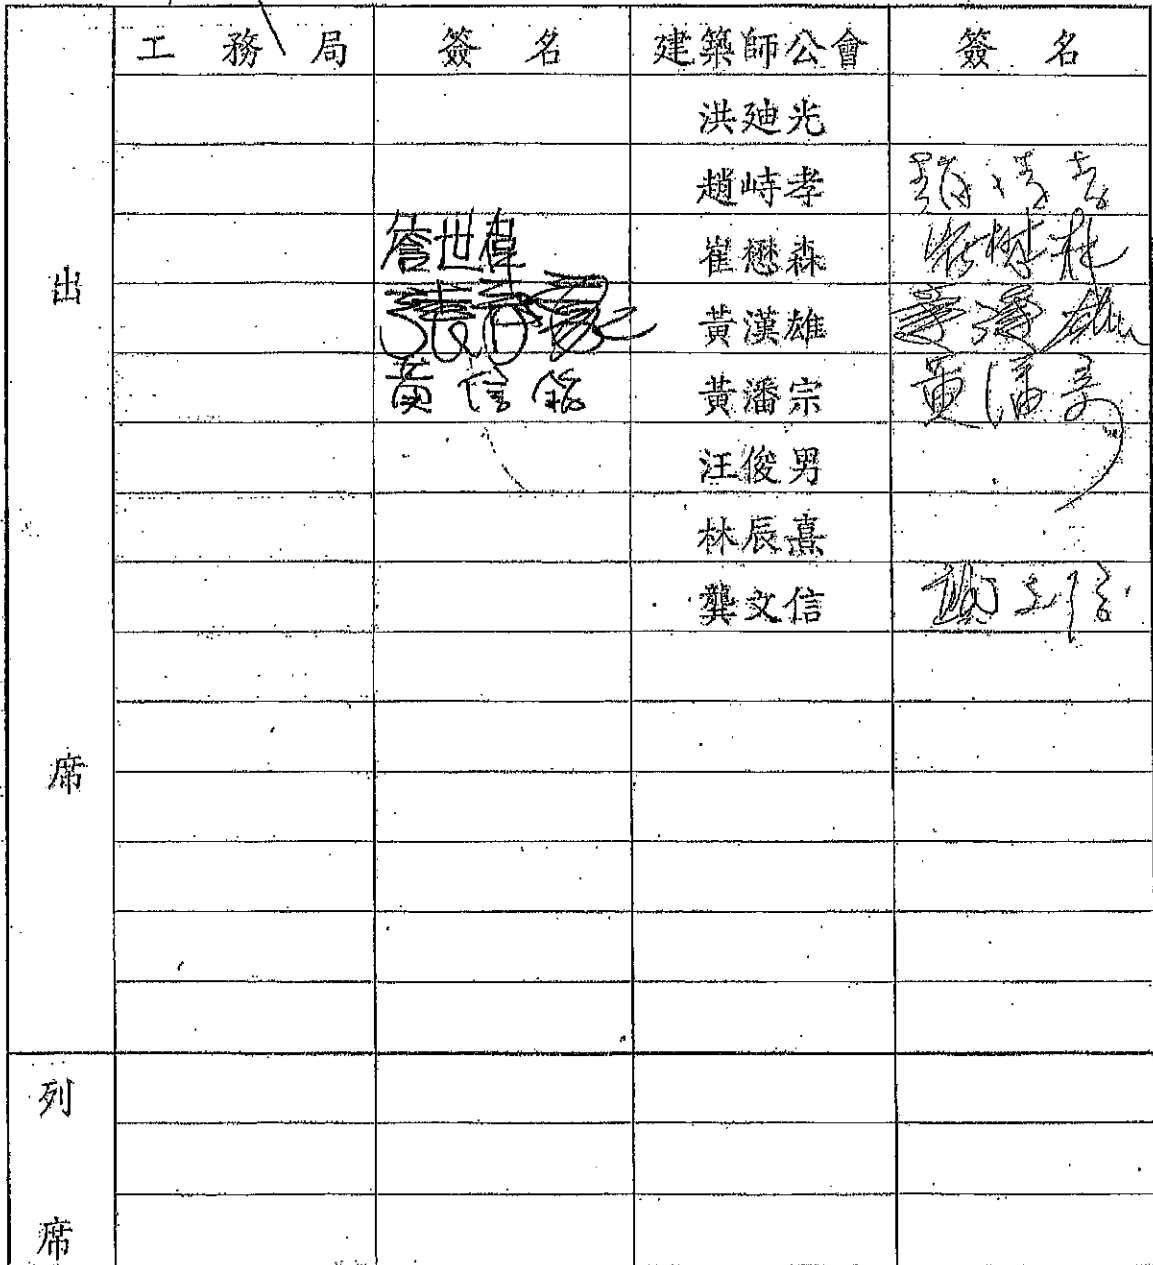 工務局 簽名 建築師公會 簽名
洪廸光
趙峙孝
詹世偉 崔懋森
黃漢雄
黃信銘 黃潘宗 黃潘宗
汪俊男
林辰熹
龔文信 龔文信
出席
列席